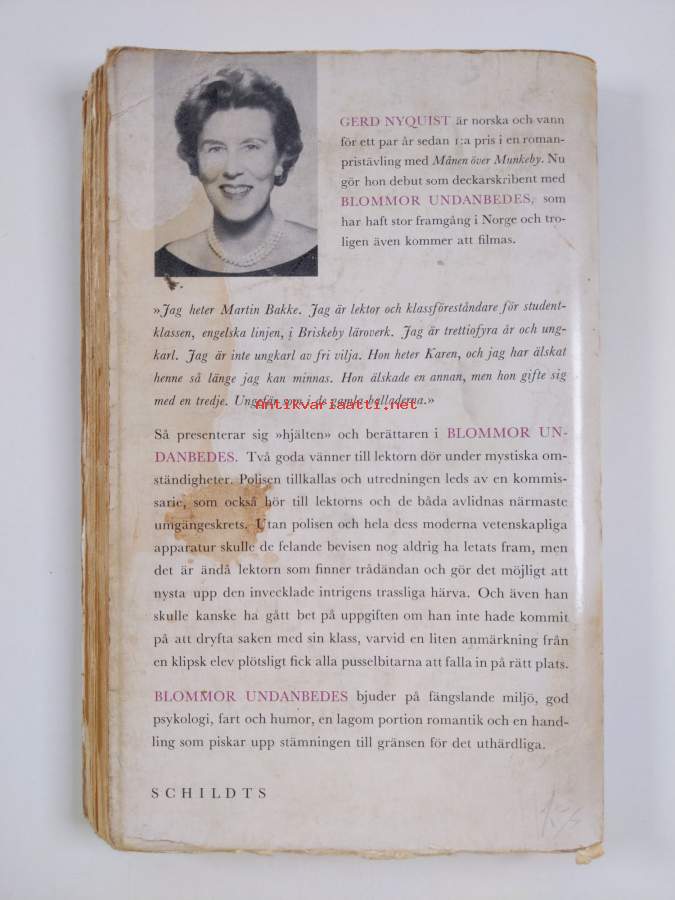 GERD NYQUIST är norska och vann
för ett par år sedan 1:a pris i en roman-
pristävling med Månen över Munkeby. Nu
gör hon debut som deckarskribent med
BLOMMOR UNDANBEDES, som
har haft stor framgång i Norge och tro-
ligen även kommer att filmas.
»Jag heter Martin Bakke. Jag är lektor och klassföreståndare för student-
klassen, engelska linjen, i Briskeby läroverk. Jag är trettiofyra år och ung-
karl. Jag är inte ungkarl av fri vilja. Hon heter Karen, och jag har älskat
henne så länge jag kan minnas. Hon älskade en annan, men hon gifte sig
med en tredje. Ungefär som i de gamla balladerna.»
antikvariaatti.net
Så presenterar sig »hjälten» och berättaren i BLOMMOR UN-
DANBEDES. Två goda vänner till lektorn dör under mystiska om-
ständigheter. Polisen tillkallas och utredningen leds av en kommis-
sarie, som också hör till lektorns och de båda avlidnas närmaste
umgängeskrets. Utan polisen och hela dess moderna vetenskapliga
apparatur skulle de felande bevisen nog aldrig ha letats fram, men
det är ändå lektorn som finner trådändan och gör det möjligt att
nysta upp den invecklade intrigens trassliga härva. Och även han
skulle kanske ha gått bet på uppgiften om han inte hade kommit
på att dryfta saken med sin klass, varvid en liten anmärkning från
en klipsk elev plötsligt fick alla pusselbitarna att falla in på rätt plats.
BLOMMOR UNDANBEDES bjuder på fängslande miljö, god
psykologi, fart och humor, en lagom portion romantik och en hand-
ling som piskar upp stämningen till gränsen för det uthärdliga.
SCHILDTS